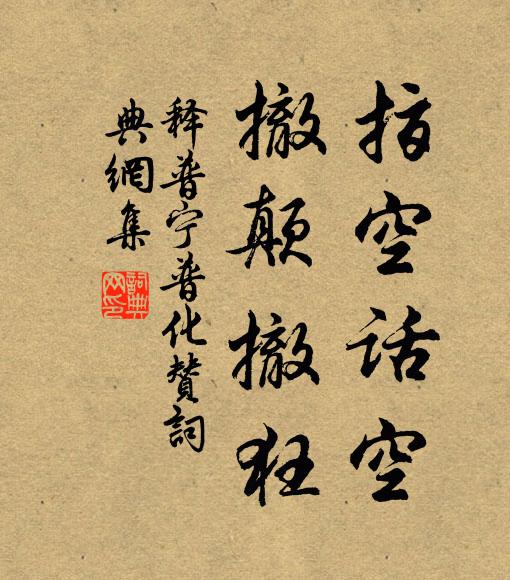 指空话空
撤颠撤狂
释普宁普化赞詞
典網集
詞典
网印